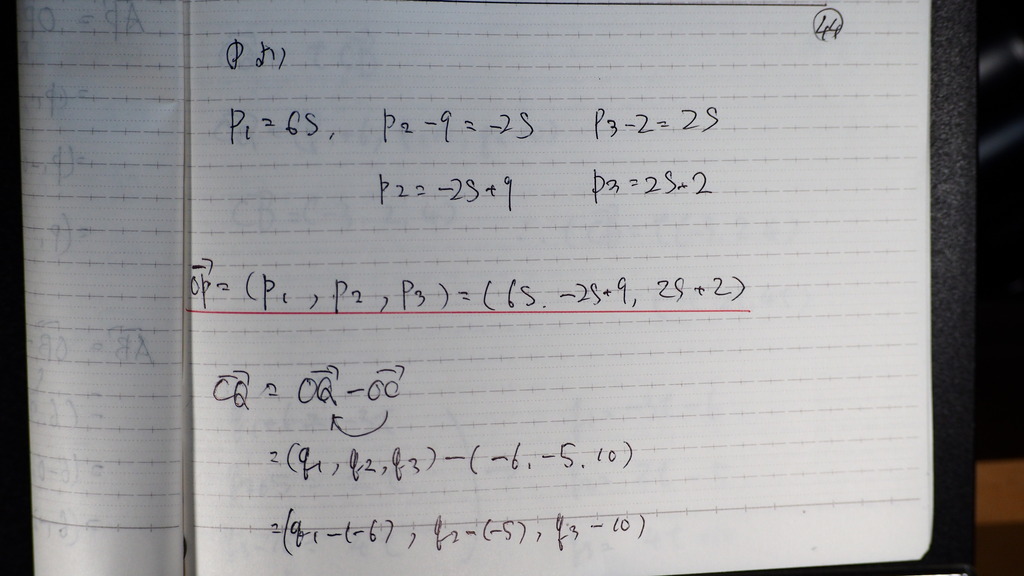 44
①より
P1=6S, P2-9=-2S P3-2=2S
P2=-2S+9 P3=2S+2
OP=(P1, P2, P3)=(6S. -2S+9, 2S+2)
CQ=OQ-OC
=(q1, q2, q3)-(-6. -5. 10)
=(q1-(-6), q2-(-5), q3-10)